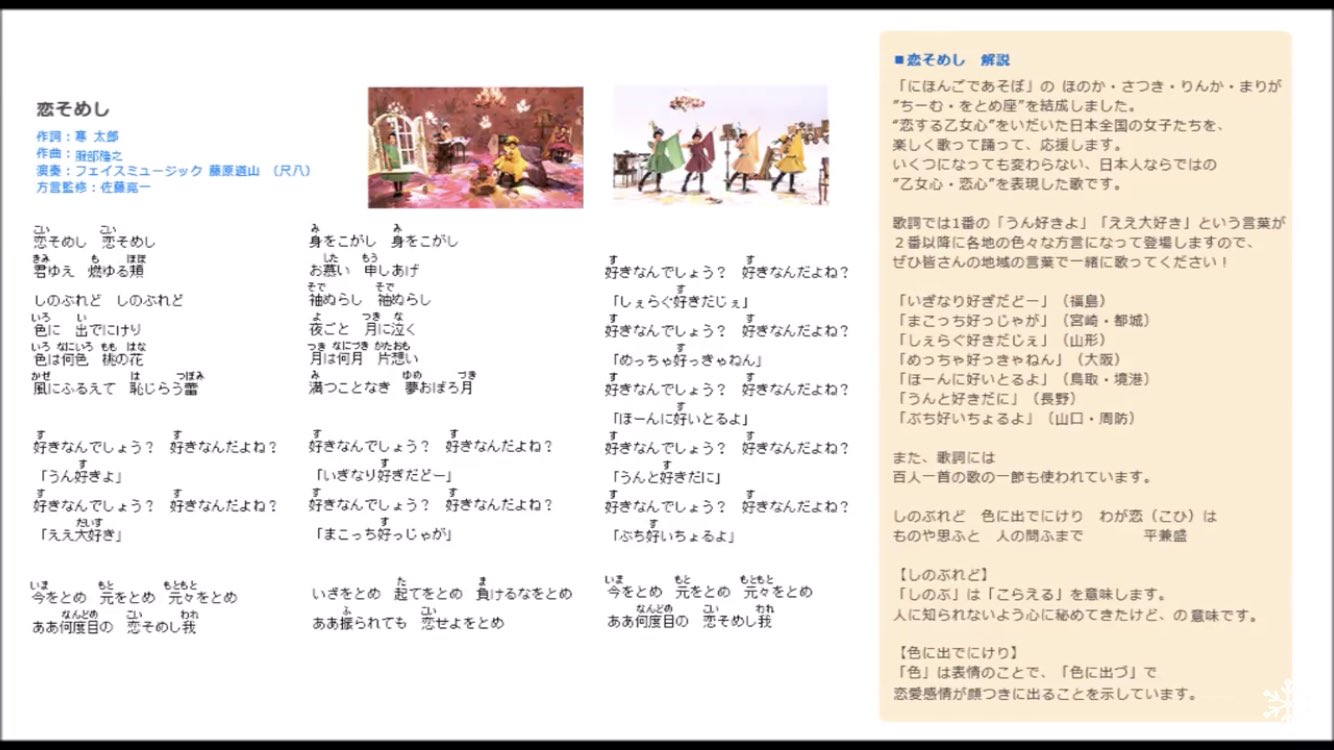 恋そめし
作詞：寒 太郎
作曲：服部隆之
演奏：フェイスミュージック 藤原道山 （尺八）
方言監修：佐藤亮一
こい こい
恋そめし 恋そめし
きみ も ほほ
君ゆえ 燃ゆる頬
しのぶれど しのぶれど
いろ い
色に 出でにけり
いろ なにいろ もも はな
色は何色 桃の花
かぜ は つぼみ
風にふるえて 恥じらう蕾
す す
好きなんでしょう？ 好きなんだよね？
す
「うん好きよ」
す す
好きなんでしょう？ 好きなんだよね？
だいす
「ええ大好き」
いま もと もともと
今をとめ 元をとめ 元々をとめ
なんどめ こい われ
ああ何度目の 恋そめし我
み み
身をこがし 身をこがし
した もう
お慕い 申しあげ
そで そで
袖ぬらし 袖ぬらし
よ つき な
夜ごと 月に泣く
つき なにづき かたおも
月は何月 片想い
み ゆめ づき
満つことなき 夢おぼろ月
す す
好きなんでしょう？ 好きなんだよね？
す
「いぎなり好ぎだどー」
す す
好きなんでしょう？ 好きなんだよね？
す
「まこっち好っじゃが」
た ま
いざをとめ 起てをとめ 負けるなをとめ
ふ こい
ああ振られても 恋せよをとめ
す す
好きなんでしょう？ 好きなんだよね？
す
「しぇらぐ好きだじぇ」
す す
好きなんでしょう？ 好きなんだよね？
す
「めっちゃ好っきゃねん」
す す
好きなんでしょう？ 好きなんだよね？
す
「ほーんに好いとるよ」
す す
好きなんでしょう？ 好きなんだよね？
す
「うんと好きだに」
す す
好きなんでしょう？ 好きなんだよね？
す
「ぶち好いちょるよ」
いま もと もともと
今をとめ 元をとめ 元々をとめ
なんどめ こい われ
ああ何度目の 恋そめし我
■恋そめし 解説
「にほんごであそぼ」の ほのか・さつき・りんか・まりが
”ちーむ・をとめ座”を結成しました。
“恋する乙女心”をいだいた日本全国の女子たちを、
楽しく歌って踊って、応援します。
いくつになっても変わらない、日本人ならではの
”乙女心・恋心”を表現した歌です。
歌詞では1番の「うん好きよ」「ええ大好き」という言葉が
２番以降に各地の色々な方言になって登場しますので、
ぜひ皆さんの地域の言葉で一緒に歌ってください！
「いぎなり好ぎだどー」（福島）
「まこっち好っじゃが」（宮崎・都城）
「しぇらぐ好きだじぇ」（山形）
「めっちゃ好っきゃねん」（大阪）
「ほーんに好いとるよ」（鳥取・境港）
「うんと好きだに」（長野）
「ぶち好いちょるよ」（山口・周防）
また、歌詞には
百人一首の歌の一節も使われています。
しのぶれど 色に出でにけり わが恋（こひ）は
ものや思ふと 人の問ふまで 平兼盛
【しのぶれど】
「しのぶ」は「こらえる」を意味します。
人に知られないよう心に秘めてきたけど、の意味です。
【色に出でにけり】
「色」は表情のことで、「色に出づ」で
恋愛感情が顔つきに出ることを示しています。